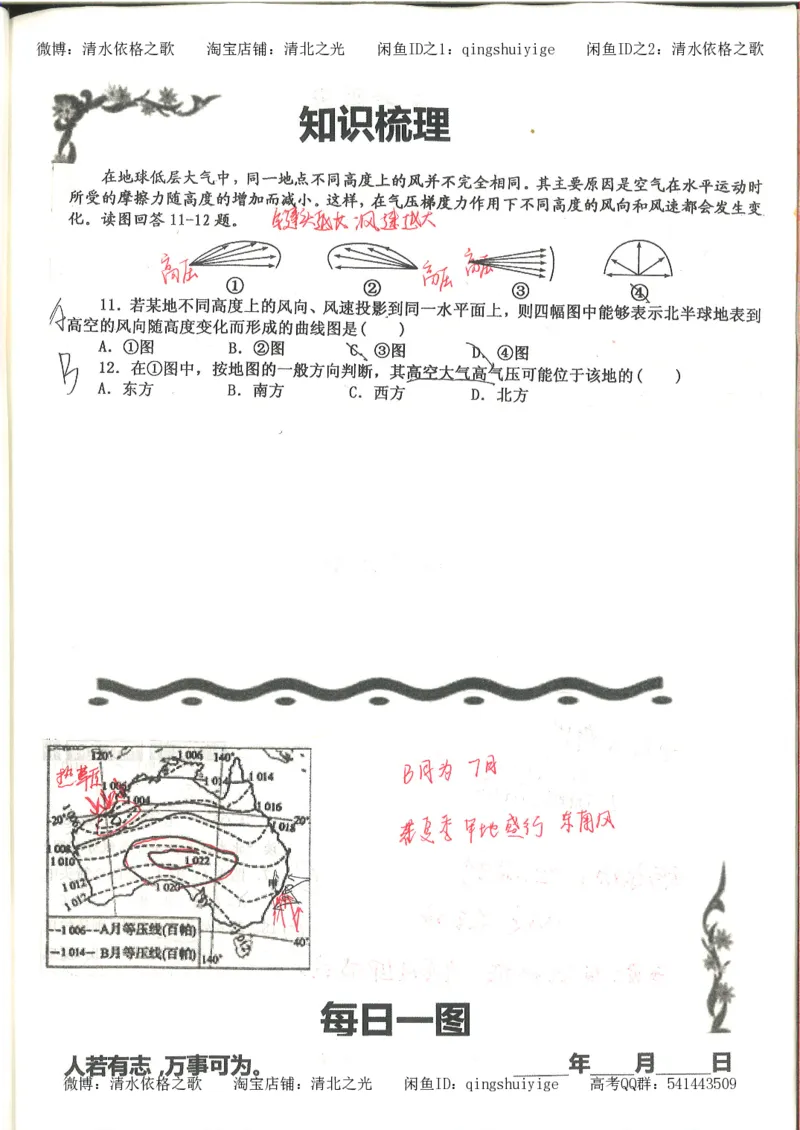 微博：清水依格之歌 淘宝店铺：清北之光 闲鱼ID之1：qingshuiyige 闲鱼ID之2：清水依格之歌
知识梳理
在地球低层大气中，同一地点不同高度上的风并不完全相同。其主要原因是空气在水平运动时
所受的摩擦力随高度的增加而减小。这样，在气压梯度力作用下不同高度的风向和风速都会发生变
化。读图回答11-12题。
越长风速越大
高压 高压 高压
① ② ③ ④
A
11．若某地不同高度上的风向、风速投影到同一水平面上，则四幅图中能够表示北半球地表到
高空的风向随高度变化而形成的曲线图是( )
A．①图 B．②图 C．③图 D．④图
B
12．在①图中，按地图的一般方向判断，其高空大气高气压可能位于该地的( )
A．东方 B．南方 C．西方 D．北方
120° 1 006 140°
1 014 1 014
1 006
1 004
1 016
20° 20°
1 018
1 008
1 010
1 022
1 012
1 020
1 012
甲
40°
1 006 A月等压线(百帕)
1 014 B月等压线(百帕)
140°
B月为 7月
夏季 甲地盛行 东南风
每日一图
人若有志,万事可为。
年 月 日
微博：清水依格之歌 淘宝店铺：清北之光 闲鱼ID：qingshuiyige 高考QQ群：541443509